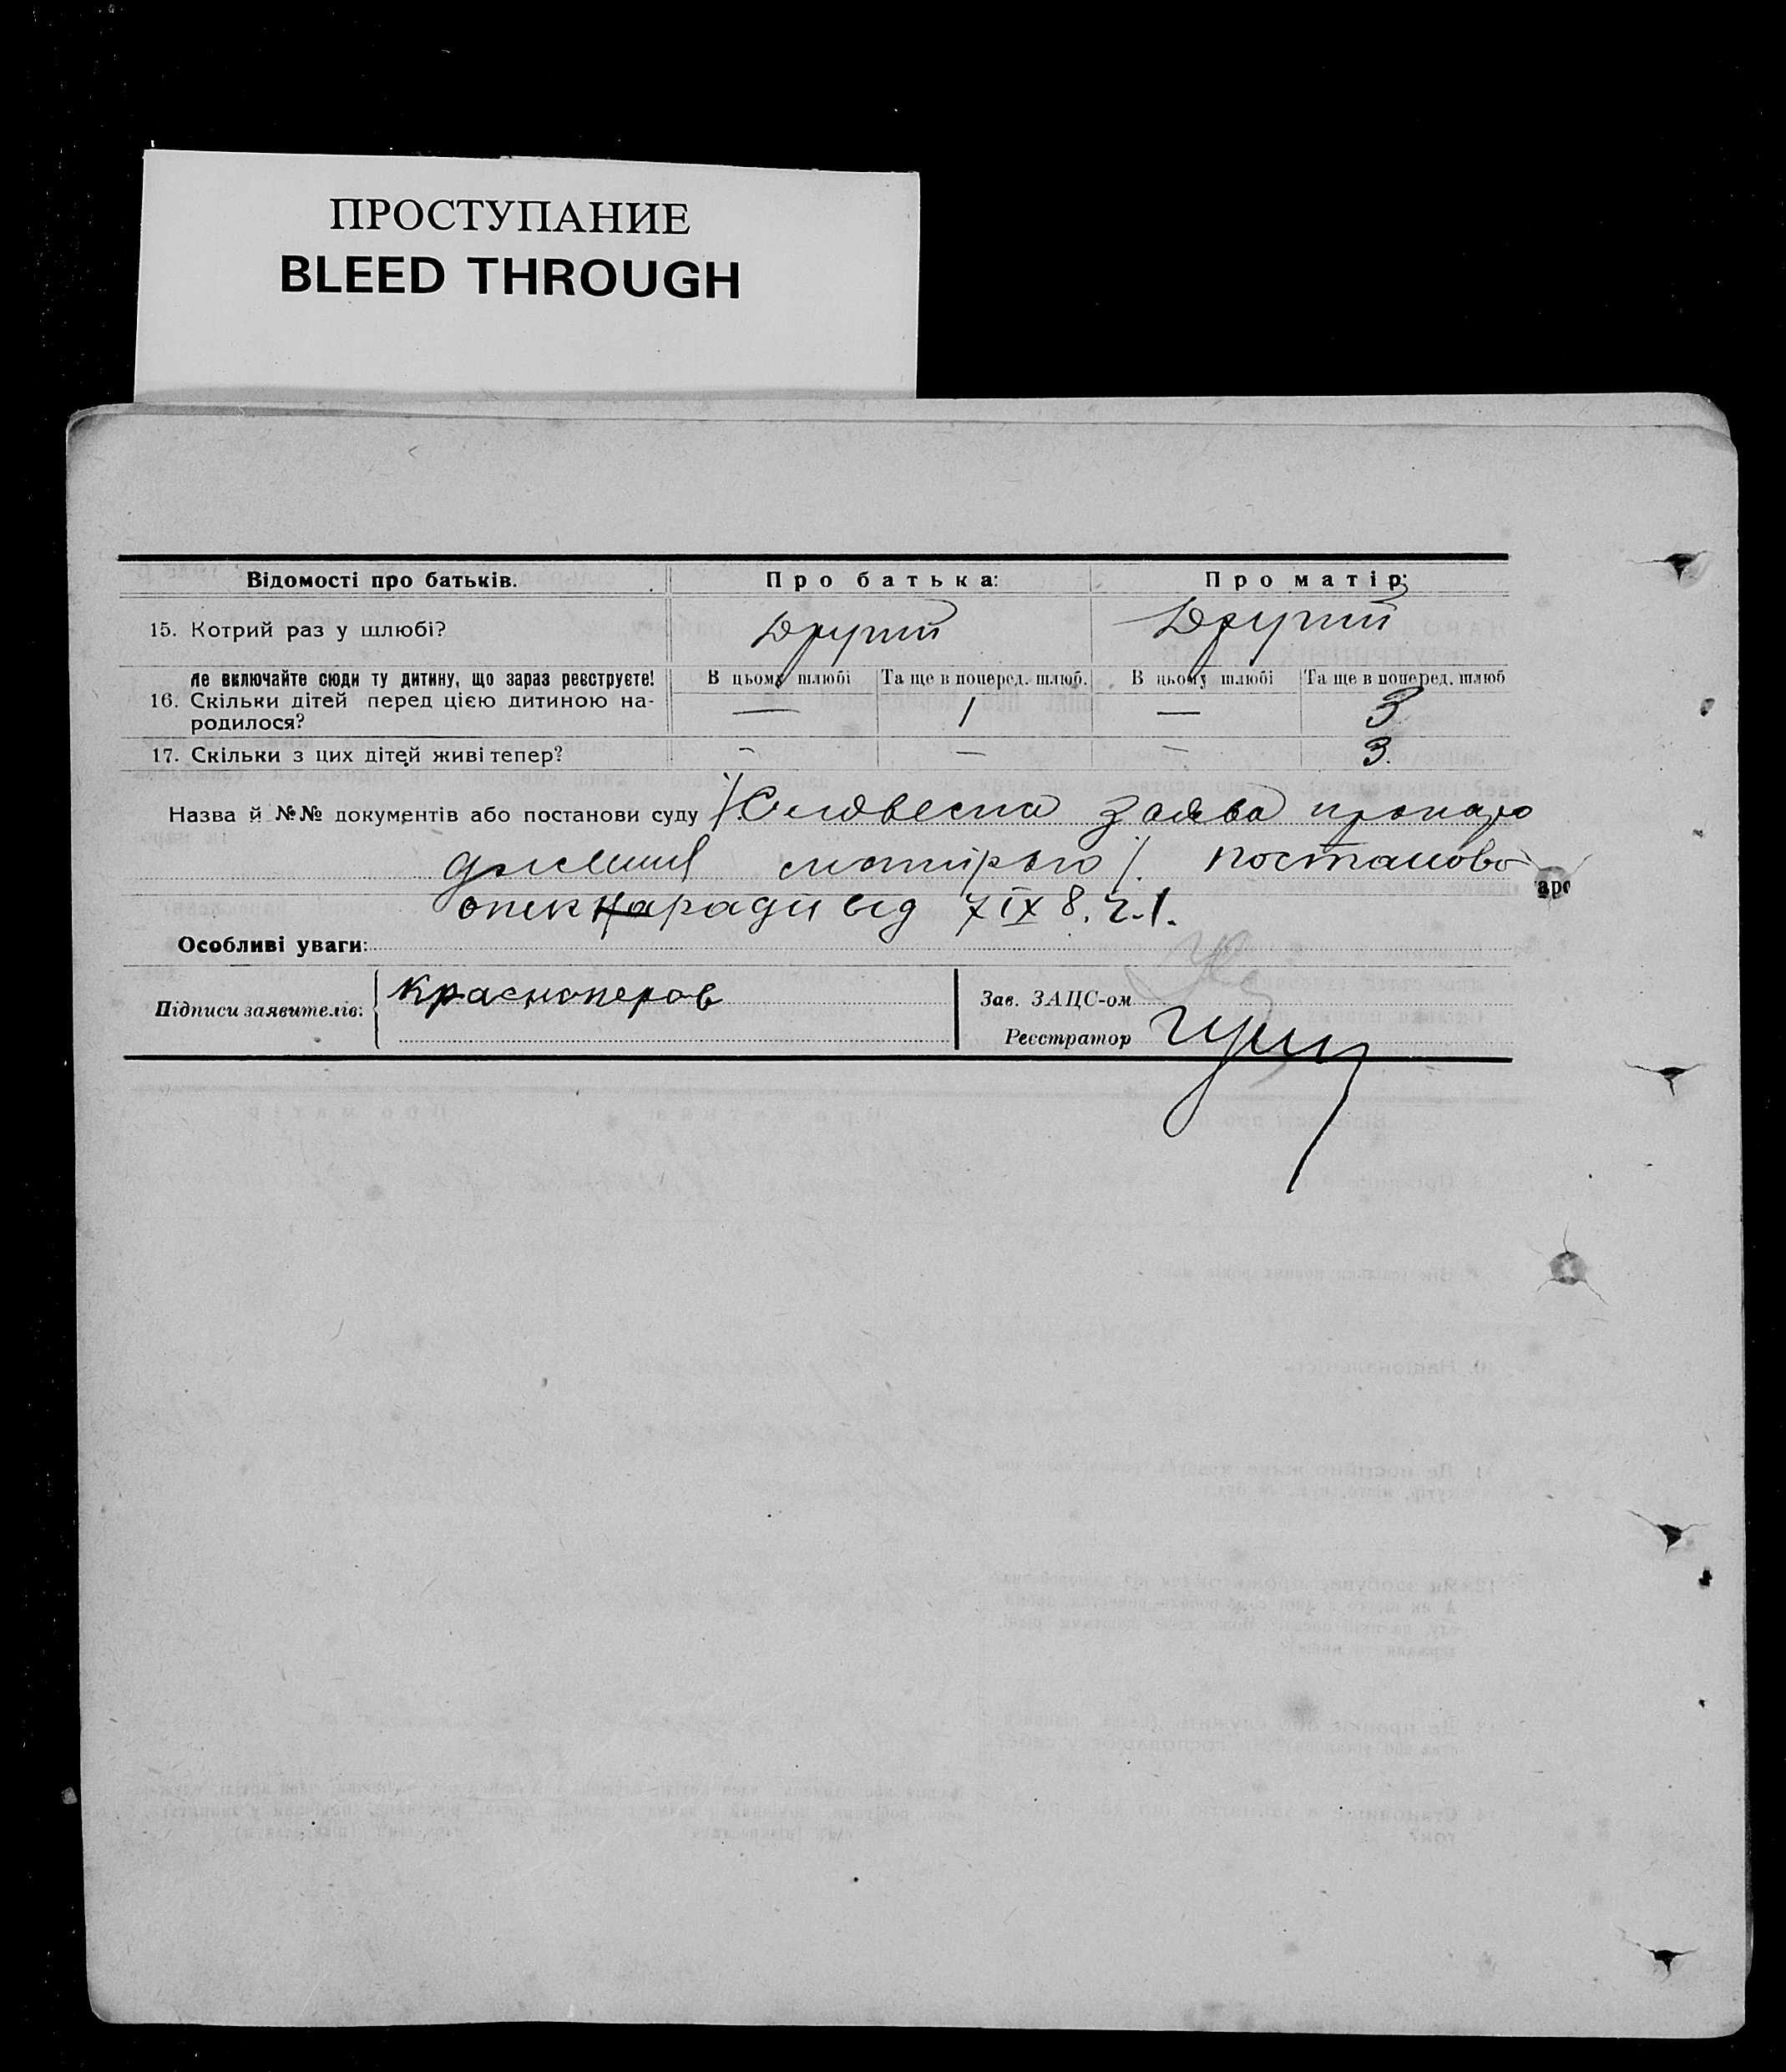 ПРОСТУПАНИЕ
BLEED THROUGH
Відомості про батьків.
Про батька:
Про матір:
15. Котрий раз у шлюбі?
Другий
Другий
не включайте сюди ту дитину, що зараз реєструєте!
16. Скільки дітей перед цією дитиною на-
родилося?
В цьому шлюбі
Та ще в поперед. шлюб.
В цьому шлюбі
Та ще в поперед. шлюб
—
1
—
3
17. Скільки з цих дітей живі тепер?
—
—
—
3.
Назва й №№ документів або постанови суду /Словесна заява про наро
дження матірью/. Постанова
опекради від 7 IX 8. ч.1.
Особливі уваги:
Підписи заявителів:
Красноперов
Зав. ЗАЦС-ом
Реєстратор